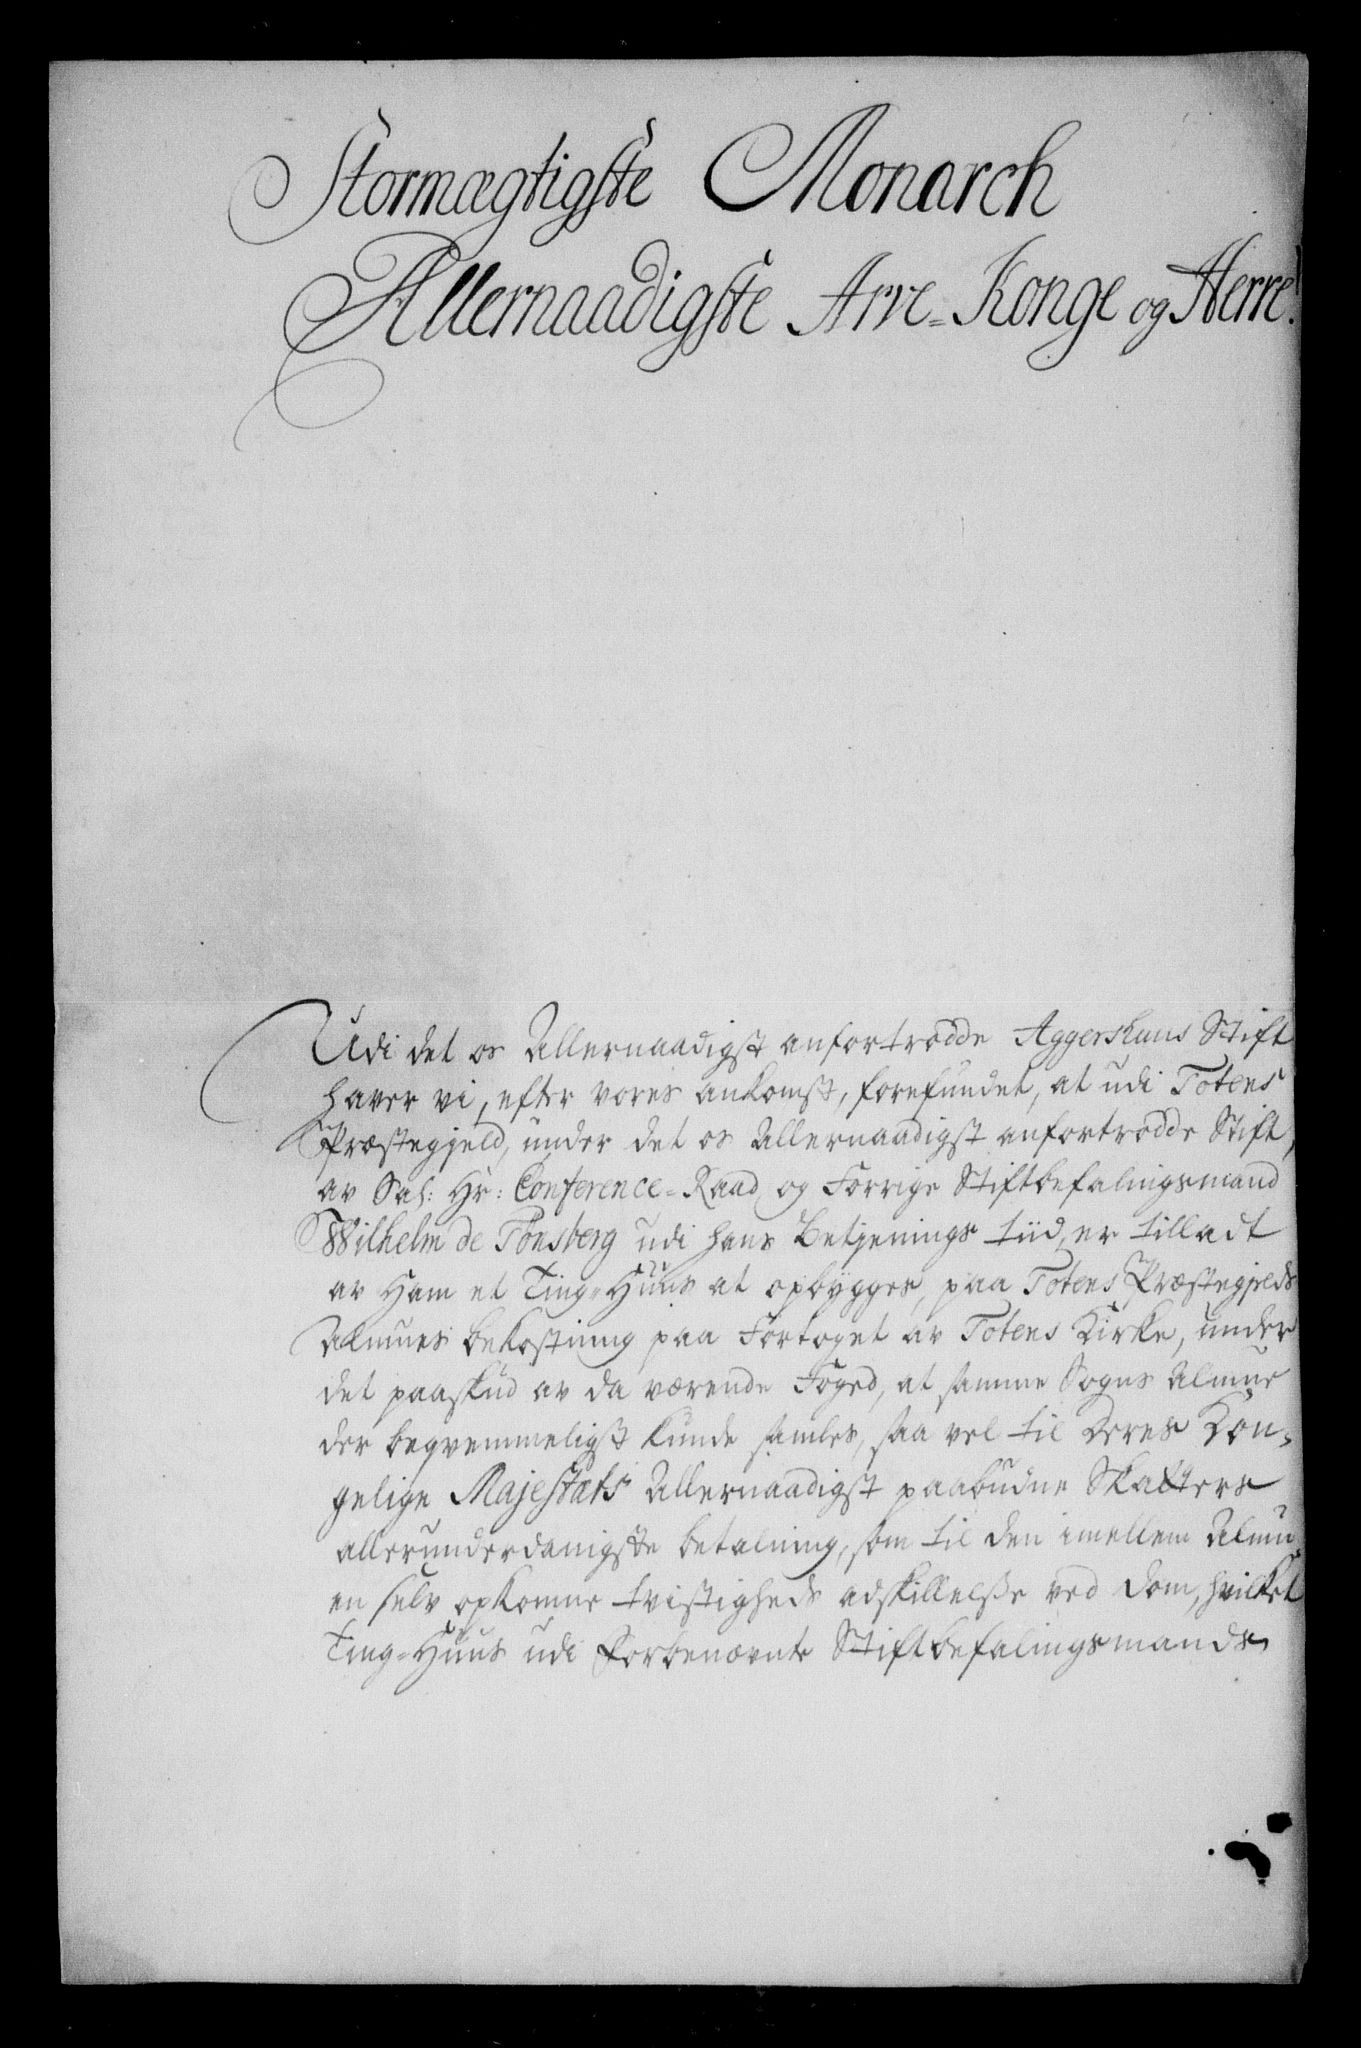 Stormægtigste Monarch
Allernaadigste Arve=Konge og Herre!
Udi det os Allernaadigst anfortrodde Aggershuus Stift
haver vi, efter vores ankomst, forefundet, at udi Totens
Præstegjeld, under det os Allernaadigst anfortrodde Stift,
av Sal: Hr: Conference=Raad og Forrige Stiftbefalingsmand
Wilhelm de Tonsberg udi hans Betjenings tiid, er tilladt
av Ham et Ting=Huus at opbygges, paa Totens Præstegjelds
Almues bekostning paa Fortoget av Totens Kirke, under
det paaskud av da værende Foged, at samme Sogns Almue
der beqvemmeligst kunde samles, saa vel til Deres Kon=
gelige Majestæts Allernaadigst paabudne Skatters
allerunderdanigste betalning, som til den imellem Almu
en selv opkomne tvistigheds adskillelße ved Dom, hvilket
Ting=Huus udi Forbenævnte Stiftbefalingsmands